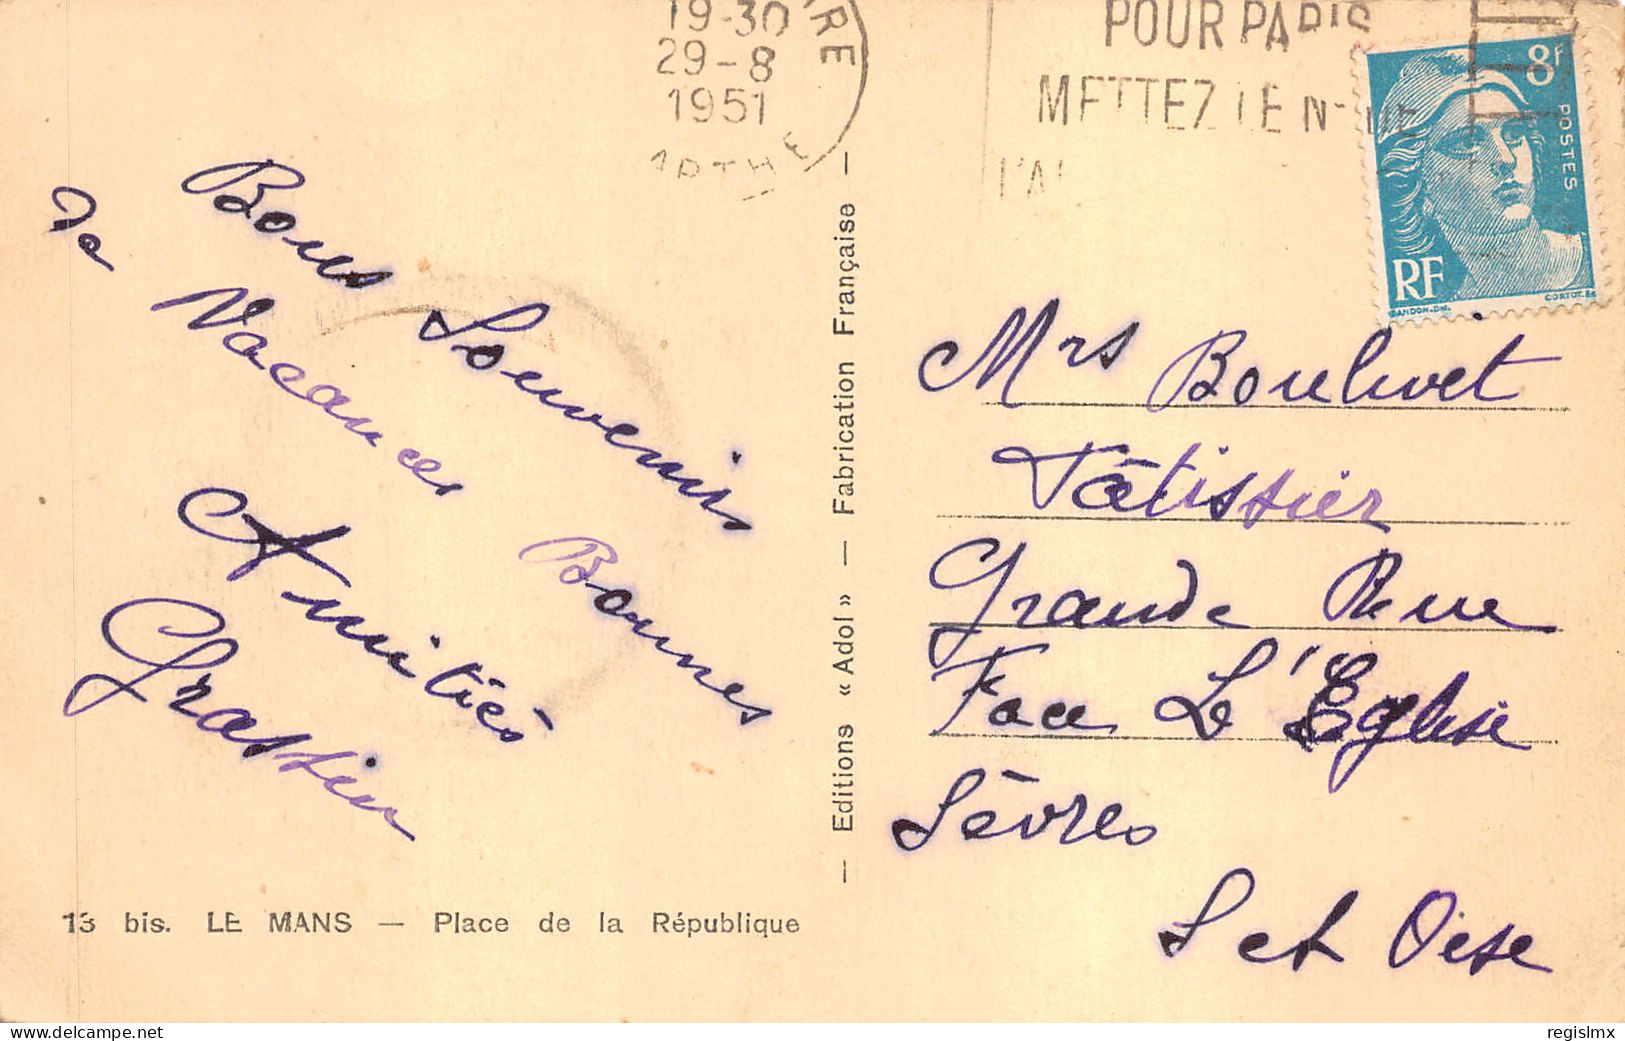 19-30
29-8
1951
POUR PARIS
METTEZ LE N°
8F
POSTES
RF
GANDON.Del.
CORTOT.Sc
Bons Souvenirs
de Vacances Bonnes
Amitiés
Grassin
Mrs
Pâtissier
Grande Rue
Face L'Eglise
Sèvres
S et Oise
— Editions « Adol » — Fabrication Française —
13 bis. LE MANS — Place de la République
regislmx